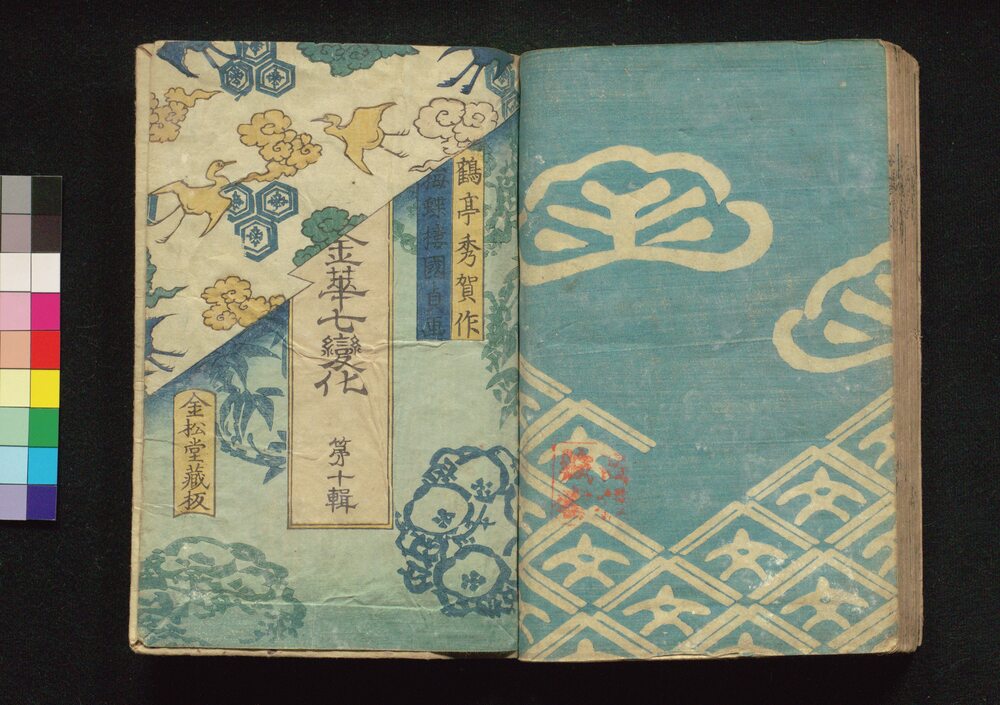 鶴亭秀賀作
梅蝶樓國貞画
金華七變化
第十輯
金松堂藏板